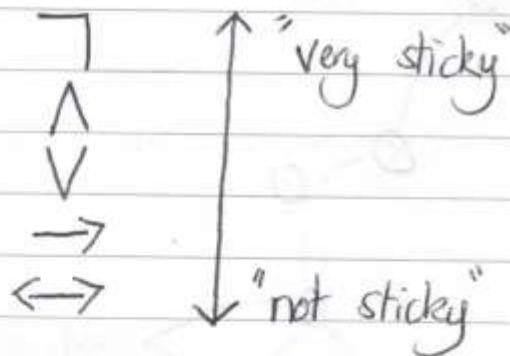 ¬ "very sticky"
∧
∨
→
↔ "not sticky"